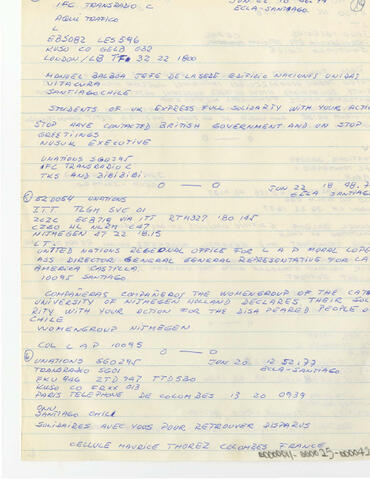 IFC TRANSRADIO C
ECLA-SANTIAGO
AQUI TRAFICO
L
EB5082 LES 546
KUSO CO GELB 032
LONDON/LB 32 22 1800
MANUEL BALBOA JEFE DE LA SEDE EDIFICIO NACIONES UNIDAS
VITACURA
SANTIAGOCHILE
STUDENTS OF UK EXPRESS FULL SOLIDARITY WITH YOUR ACTION
STOP HAVE CONTACTED BRITISH GOVERNMENT AND UN STOP
GREETINGS
NUSUK EXECUTIVE
UNATIONS SGO295
IFC TRANSRADIO C
TKS AND BIBIBIBI
O — O
JUN 22 18 48.7
ECLA SANTIAGO
⑤ 520054 UNATIONS
ITT TLGM SVC 01
ZCZC ECB718 VIA ITT RTA327 180 145
C47
NIJMEGEN 27 22 18.15
LT.
UNITED NATIONS REGIONAL OFFICE FOR L A P MORAL LOPE
ASS DIRECTOR GENERAL GENERAL REPRESENTATIVE FOR LA
AMERICA CASTILLA.
10095 SANTIAGO
COMPAÑERAS COMPAÑEROS THE WOMENGROUP OF THE CAT
UNIVERSITY OF NIJMEGEN HOLLAND DECLARES THEIR SOL
RITY WITH YOUR ACTION FOR THE DISAPEARED PEOPLE O
CHILE
WOMENGROUP NIJMEGEN
COL L A P 10095
O — O
⑥ UNATIONS SGO295 JUN 20 12 52.77
TRANSRADIO SGO1 ECLA-SANTIAGO
FKU 946 ZTD 747 TTD530
KUSO CO 013
PARIS TELEPHONE DE COLOMBES 13 20 0939
ONU
SANTIAGO CHILI
SOLIDAIRES AVEC VOUS POUR RETROUVER DISPARUS
CELLULE MAURICE THOREZ COLOMBES FRANCE